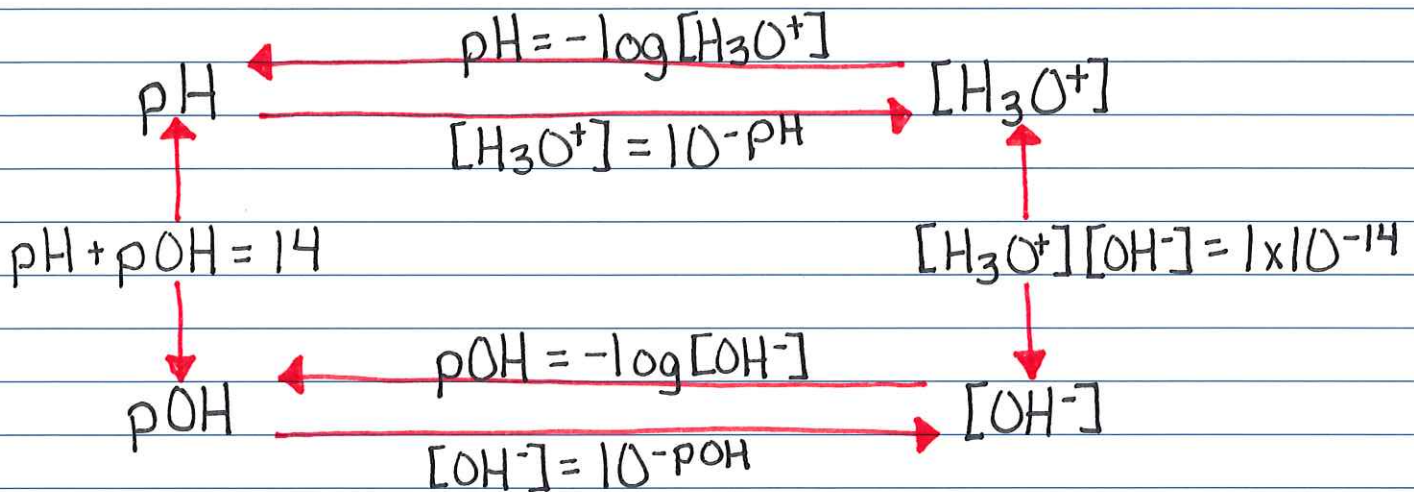 pH = -log[H₃O⁺]
pH [H₃O⁺]
[H₃O⁺] = 10⁻ᵖᴴ
pH + pOH = 14 [H₃O⁺][OH⁻] = 1x10⁻¹⁴
pOH = -log[OH⁻]
pOH [OH⁻]
[OH⁻] = 10⁻ᵖᴼᴴ